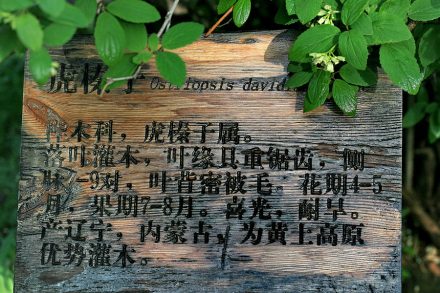 虎榛子 Ostriopsis davidi
桦木科，虎榛子属。
落叶灌木，叶缘具重锯齿，侧
脉7-9对，叶背密被毛。花期4-5
月，果期7-8月。喜光，耐旱。
产辽宁，内蒙古，为黄土高原
优势灌木。